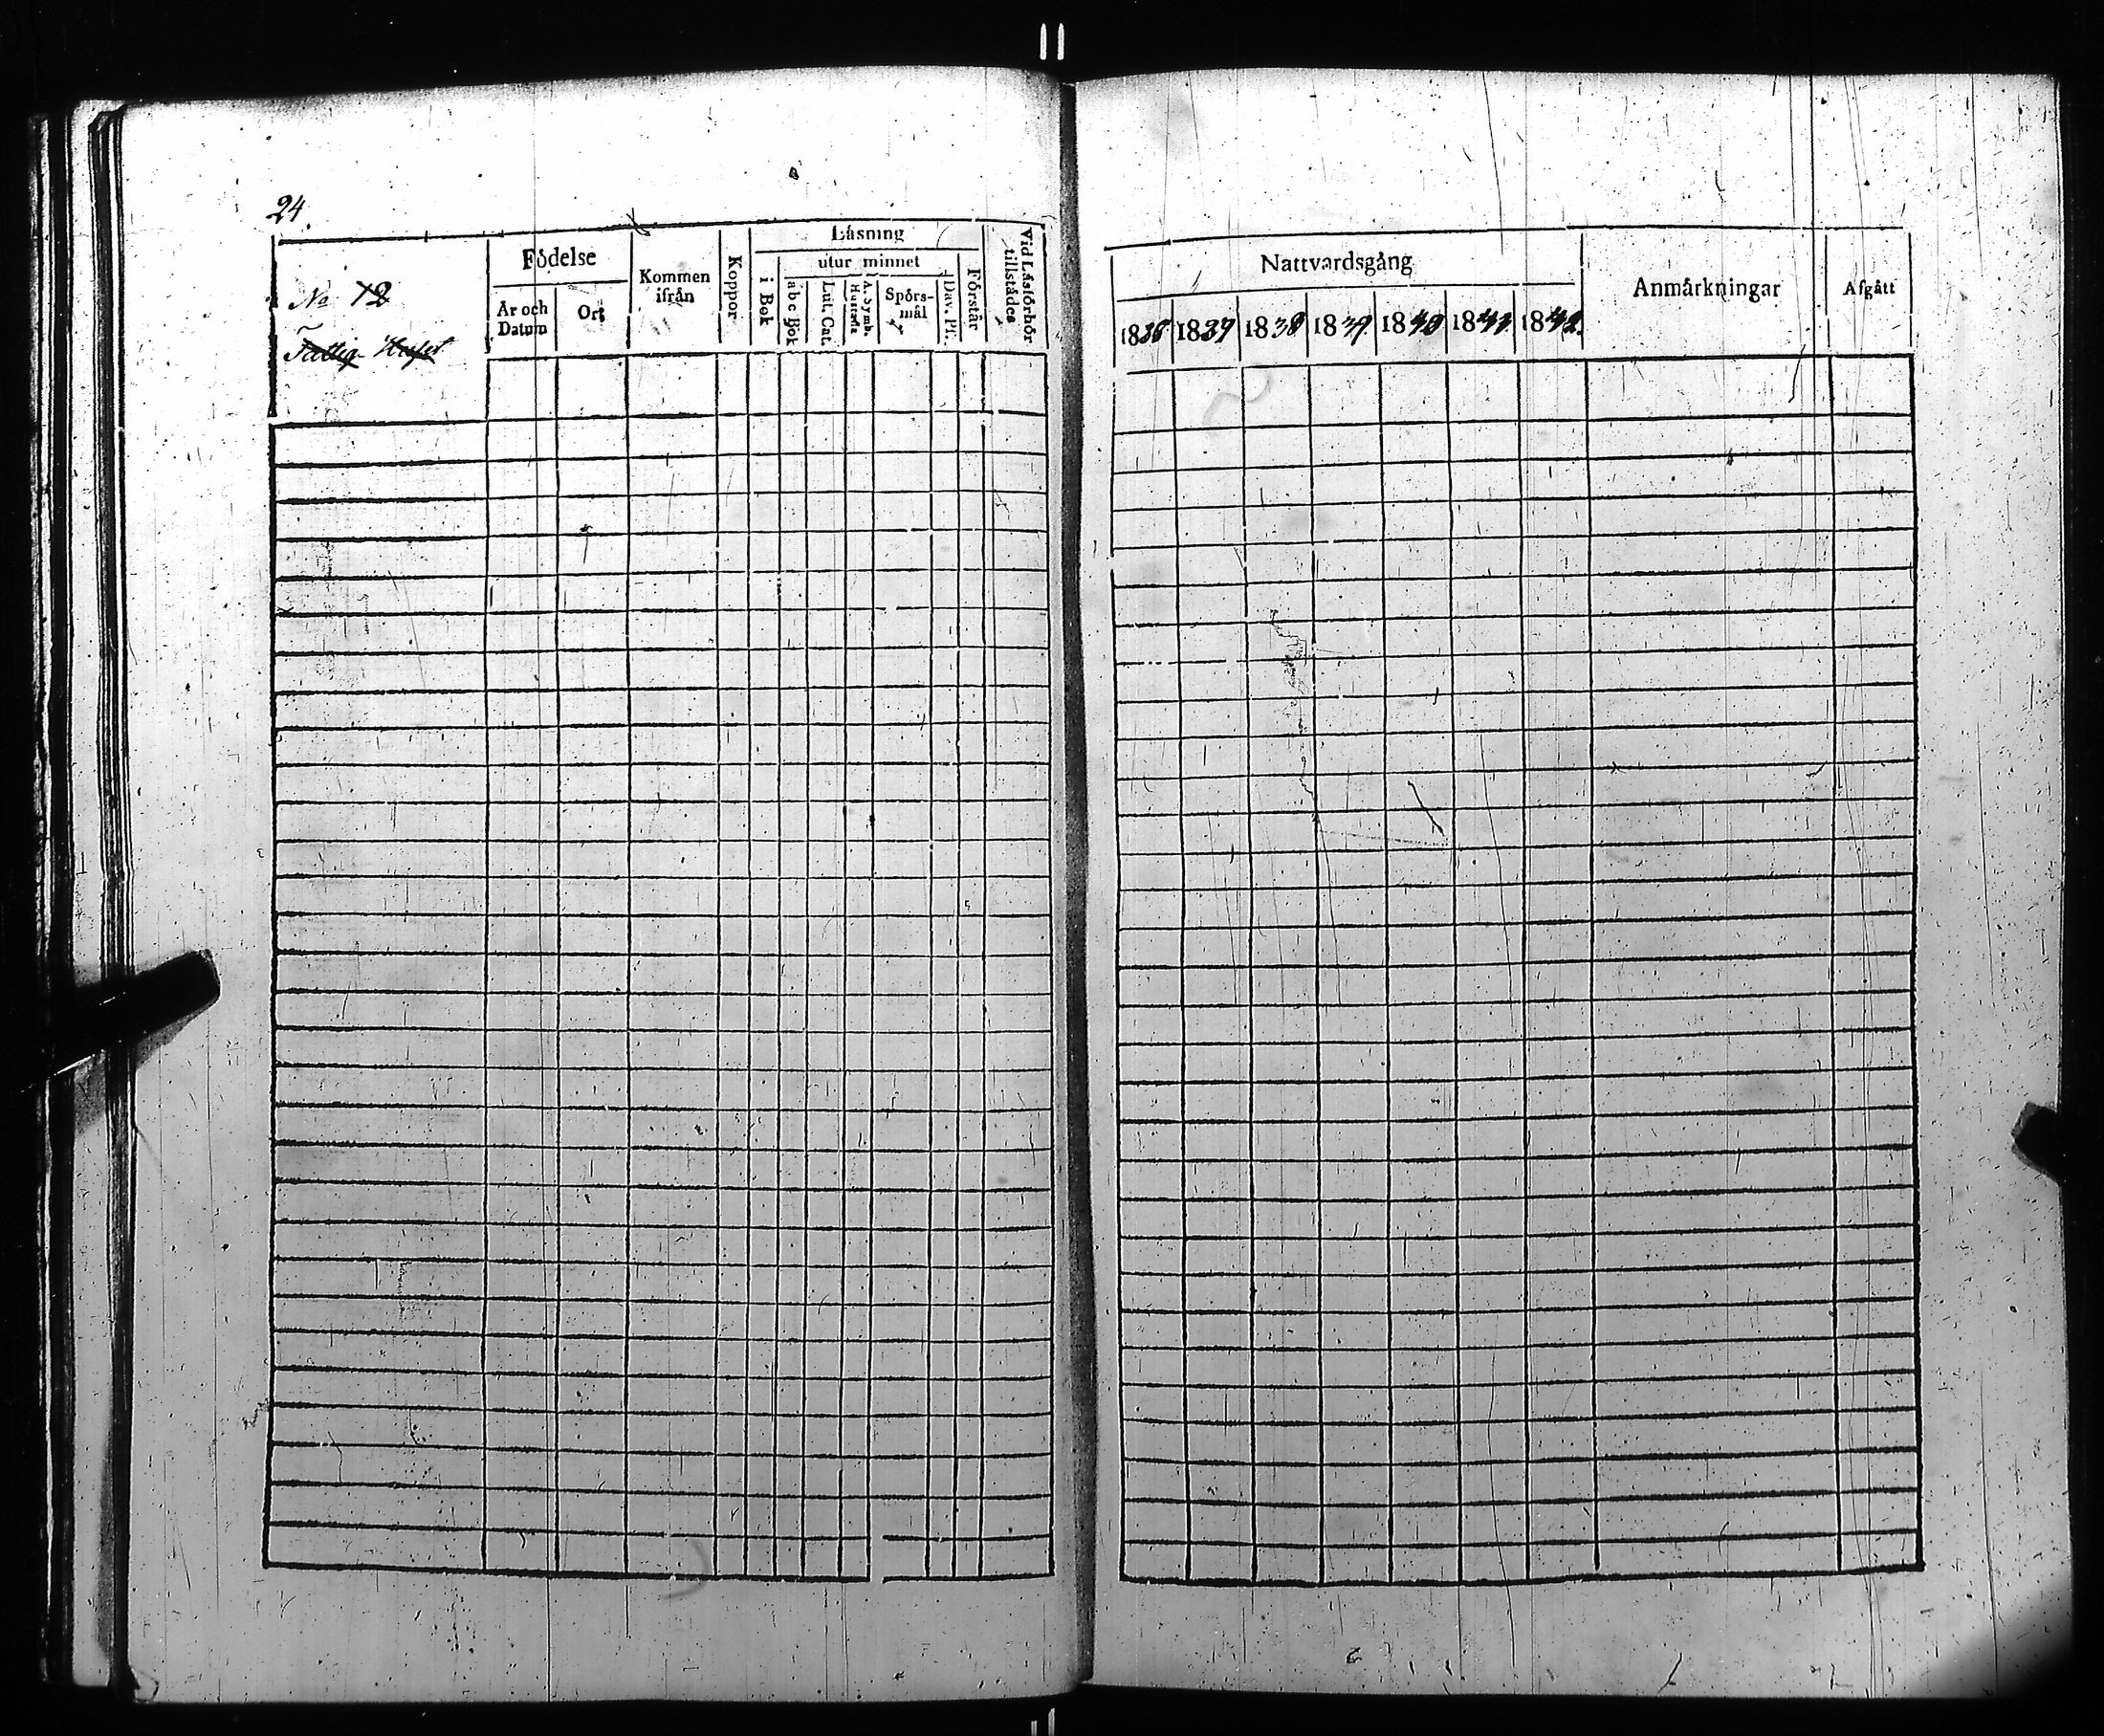 24.
No 12
Fattig Huset
Födelse
År och Datum
Ort
Kommen ifrån
Koppor
Läsning
utur minnet
i Bok
abc Bok
Lut. Cat.
A. Symb. Hustafla.
Spörs-mål
Dav. Ps.
Förstår
Vid Läsförhör tillstädes
Nattvardsgång
1836 1837 1838 1839. 1840 1841. 1842.
Anmärkningar
Afgått